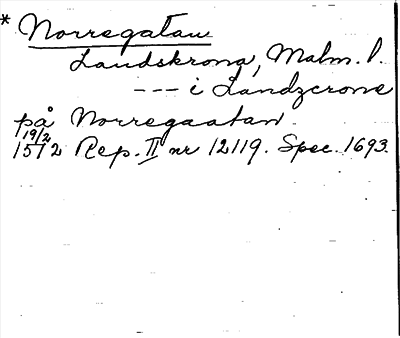 * Norregatan
Landskrona, Malm. l.
--- i Landzcrone
på Norregaatan.
19/2
1512 Rep. II nr 12119. Spec. 1693.